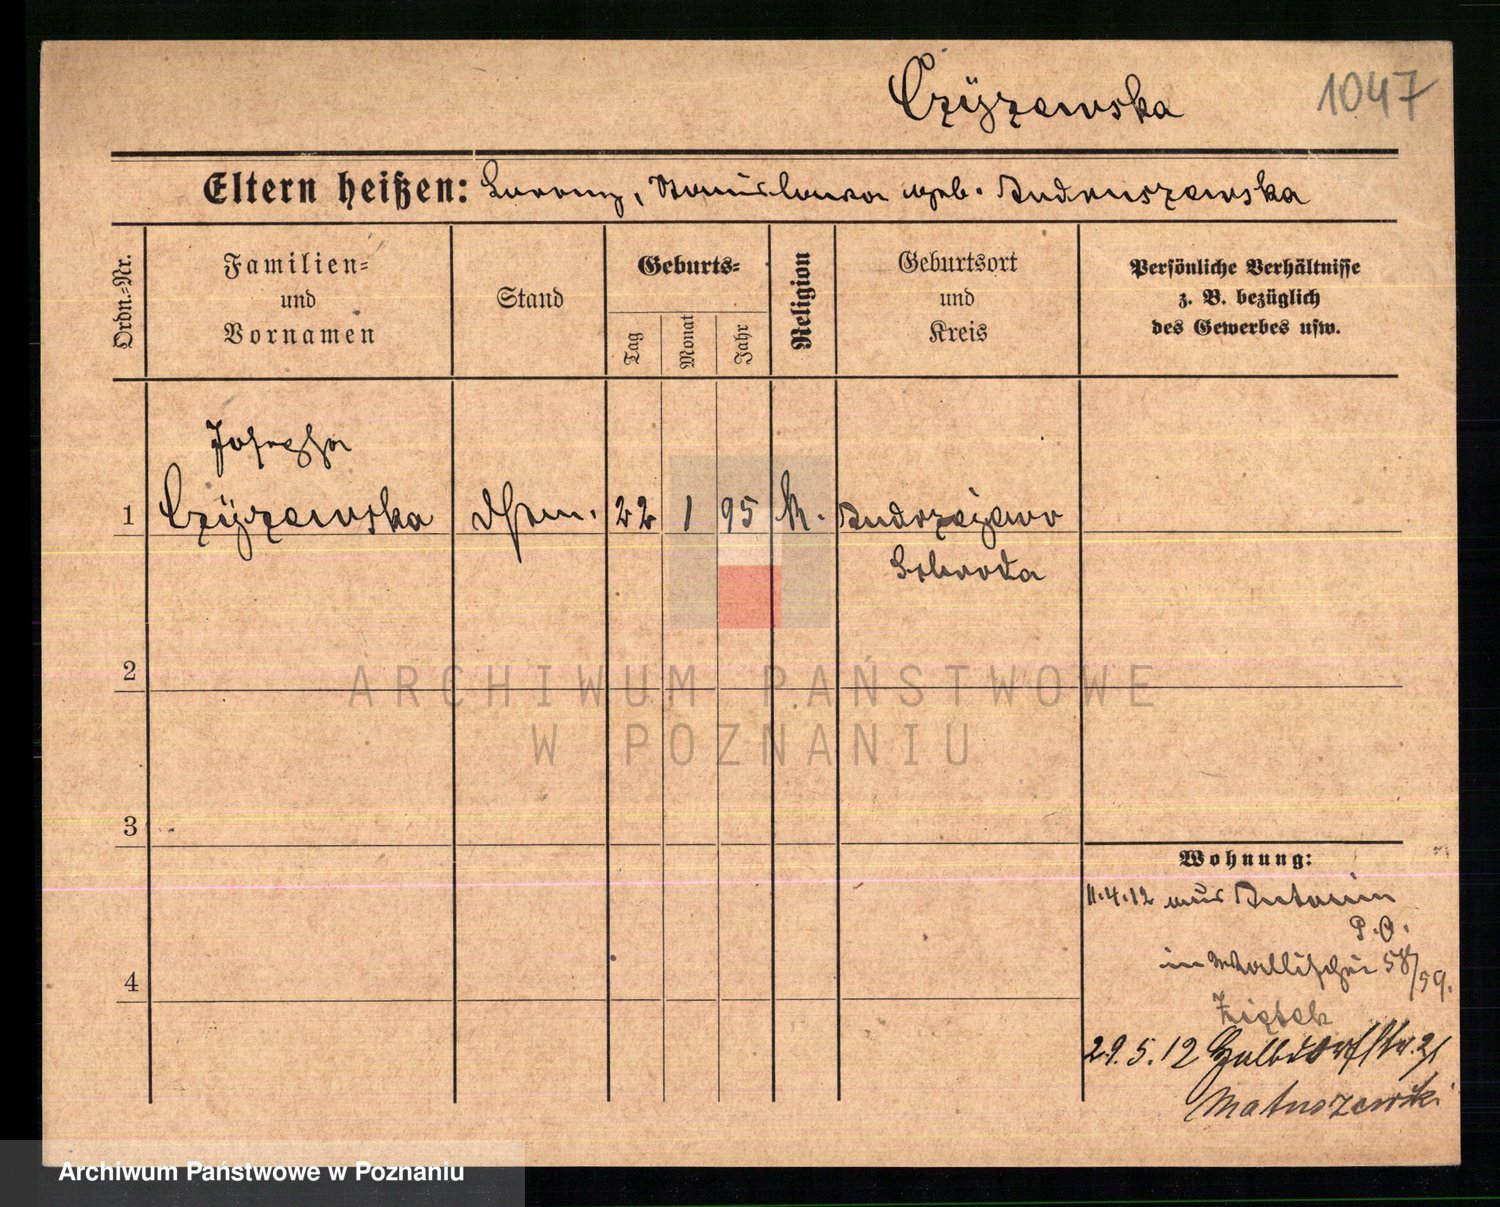 Czÿzewska 1047
Eltern heißen: Lorenz, Stanislawa geb. Andruszewska
Ordn.-Nr.
Familien-
und
Vornamen
Stand
Geburts-
Tag
Monat
Jahr
Religion
Geburtsort
und
Kreis
Persönliche Verhältnisse
z. B. bezüglich
des Gewerbes usw.
Josepha
1 Czÿzewska 22 1 95 k. Andrzejewo
Schroda
2
ARCHIWUM PAŃSTWOWE
W POZNANIU
3
Wohnung:
11.4.12 aus Antonin
P.O.
4 in Wallischei 58/59.
Ziętek
29.5.12 Halbdorfstr. 21
Matuszewski
Archiwum Państwowe w Poznaniu